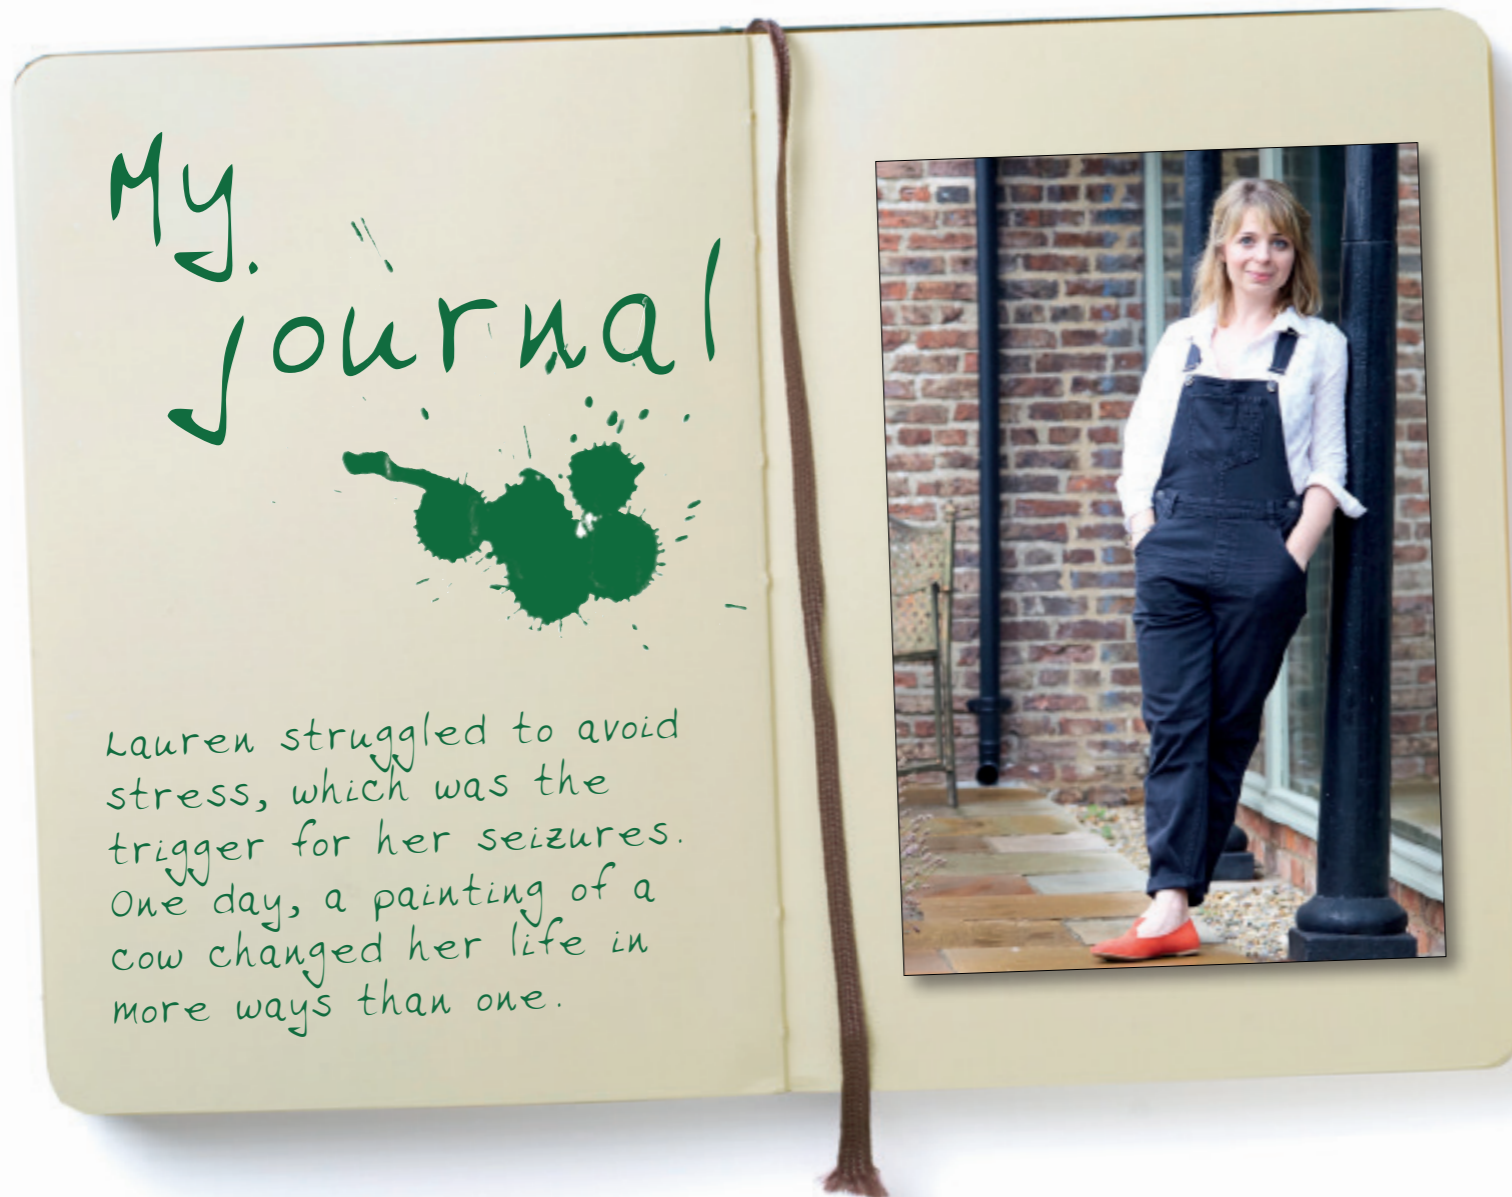 My
journal
Lauren struggled to avoid
stress, which was the
trigger for her seizures.
One day, a painting of a
cow changed her life in
more ways than one.